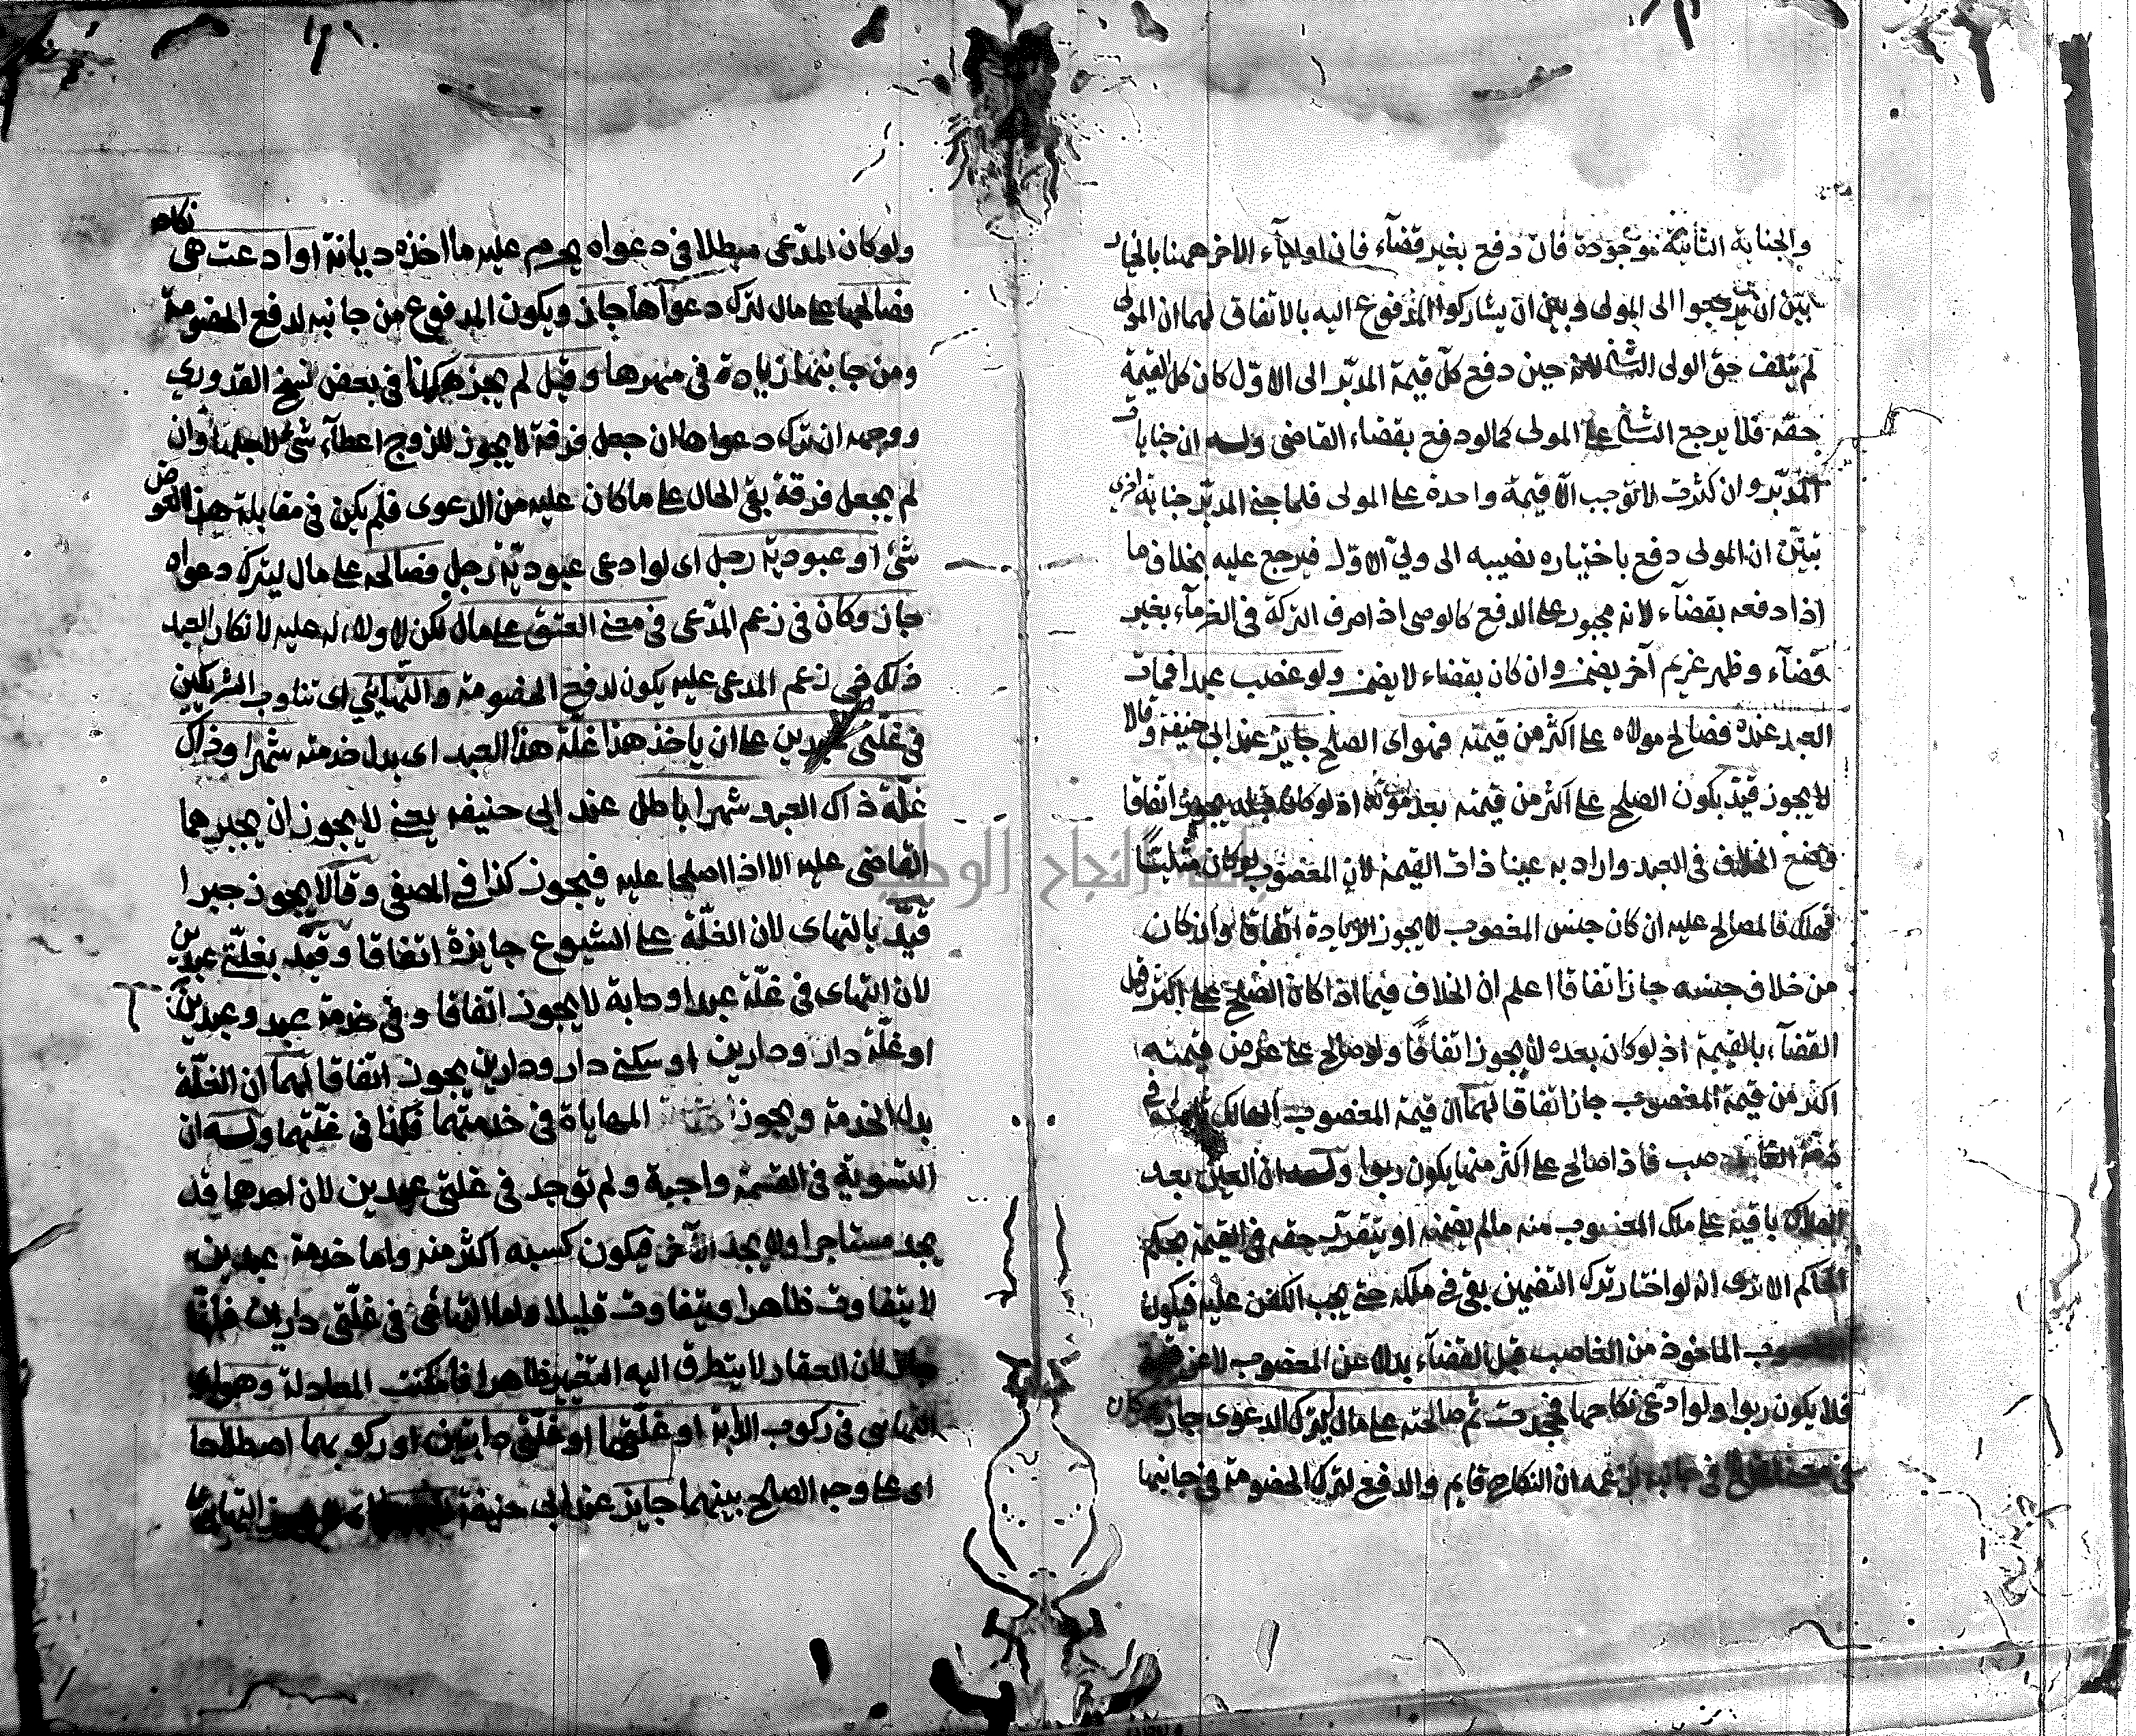 والجناية الثانية موجودة فان دفع بغير قضآء فان اولياء الآخر همنا بالخيار
بين ان يرجعوا الى المولى وبين ان يشاركوا المدفوع اليه بالاتفاق لهما ان المولى
لم يتلف حق الولى الثانى لانه حين دفع كل قيمة المدبّر الى الاوّل كان كل القيمة
حقّه فلا يرجع الثانى على المولى كما لو دفع بقضاء القاضى وله ان جنايات
المدبّر وان كثرت لا توجب الّا قيمة واحدة على المولى فلما جنى المدبّر جناية اخرى
تبيّن ان المولى دفع باختياره نصيبه الى ولىّ الاوّل فيرجع عليه بخلاف ما
اذا دفعه بقضآء لانه مجبور على الدفع كالوصى اذا صرف التركة فى الغرمآء بغير
قضآء وظهر غريم آخر يضمن وان كان بقضاء لا يضمن ولو غصب عبدا فمات
العبد عنده فصالح مولاه على اكثر من قيمته فهو اى الصلح جايز عند ابى حنيفة وقالا
لا يجوز قيد بكون الصلح على اكثر من قيمته بعد موته اذ لو كان قبله يجوز اتفاقا
وضع الخلاف فى العبد واراد به عينا ذات القيمة لان المغصوب لو كان مثليّا
فهلك فالمصالح عليه ان كان جنس المغصوب لا يجوز الزيادة اتفاقا وان كان
من خلاف جنسه جاز اتفاقا اعلم ان الخلاف فيما اذا كان الصلح على اكثر قبل
القضآء بالقيمة اذ لو كان بعده لا يجوز اتفاقًا ولو صالح على عرض قيمته
اكثر من قيمة المغصوب جاز اتفاقا لهما ان قيمة المغصوب الهالك ثابتة فى
ذمة الغاصب فاذا صالح على اكثر منها يكون ربوا وله ان العين بعد
الهلاك باقية على ملك المغصوب منه مالم يضمنه او يتقرّر حقه فى القيمة بحكم
الحاكم الا ترى انه لو اختار ترك التضمين بقى فى ملكه حتى يجب الكفن عليه فيكون
الماخوذ من الغاصب قبل القضآء بدلا عن المغصوب لا عن قيمته
فلا يكون ربوا ولو ادّعى نكاحها فجحدت ثم صالحته على مال ليترك الدعوى جاز وكان
فى معنى الخلع فى جانبه لزعمه ان النكاح قايم والدفع لترك الخصومة فى جانبها
ولو كان المدّعى مبطلا فى دعواه يحرم عليه ما اخذه ديانة او ادعت هى نكاحه
فصالحها على مال لترك دعواها جاز ويكون المدفوع من جانبه لدفع الخصومة
ومن جانبها زيادة فى مهرها وقيل لم يجز هكذا فى بعض نسخ القدورى
ووجهه ان ترك دعواها ان جعل فرقة لا يجوز للزوج اعطآء شئ لاجلها وان
لم يجعل فرقة بقى الحال على ما كان عليه من الدعوى فلم يكن فى مقابلة هذا العوض
شئ او عبودية رجل اى لو ادعى عبوديّة رجل فصالحه على مال ليترك دعواه
جاز وكان فى زعم المدّعى فى معنى العتق على مال لكن لا ولاء له عليه لانكار العبد
ذلك فى زعم المدعى عليه يكون لدفع الخصومة والتهايئ اى تناوب الشريكين
فى غلّتى عبدين على ان ياخذ هذا غلة هذا العبد اى بدل خدمته شهرا وذاك
غلّة ذاك العبد شهرا باطل عند ابى حنيفه يعنى لا يجوز ان يجبرهما
القاضى عليه الا اذا اصلحا عليه فيجوز كذا فى المصفى وقالا يجوز جبرا
قيّد بالتهاى لان الغلّة على الشيوع جايزة اتفاقا وقيد بغلّتى عبدين
لان التهاى فى غلّة عبد او دابة لا يجوز اتفاقا وفى خدمة عبد وعبدين
او غلّة دار ودارين او سكنى دار ودارين يجوز اتفاقا لهما ان الغلّة
بدل الخدمة ويجوز المهاياة فى خدمتهما فكذا فى غلّتهما وله ان
التسوية فى القسمة واجبة ولم توجد فى غلتى عبدين لان احدهما قد
يجد مستاجرا ولا يجد الآخر فيكون كسبه اكثر منه واما خدمة عبدين
لا يتفاوت ظاهرا ويتفاوت قليلا واما التهائى فى غلّتى دارين فانما
جاز لان العقار لا يتطرق اليه التغير ظاهرا فامكنت المعادلة وهو اى
التهايى فى ركوب الدابة او غلّتها او غلّتى دابتين او ركوبهما اصطلاحا
اى على وجه الصلح بينهما جايز عند ابى حنيفة التهايئ